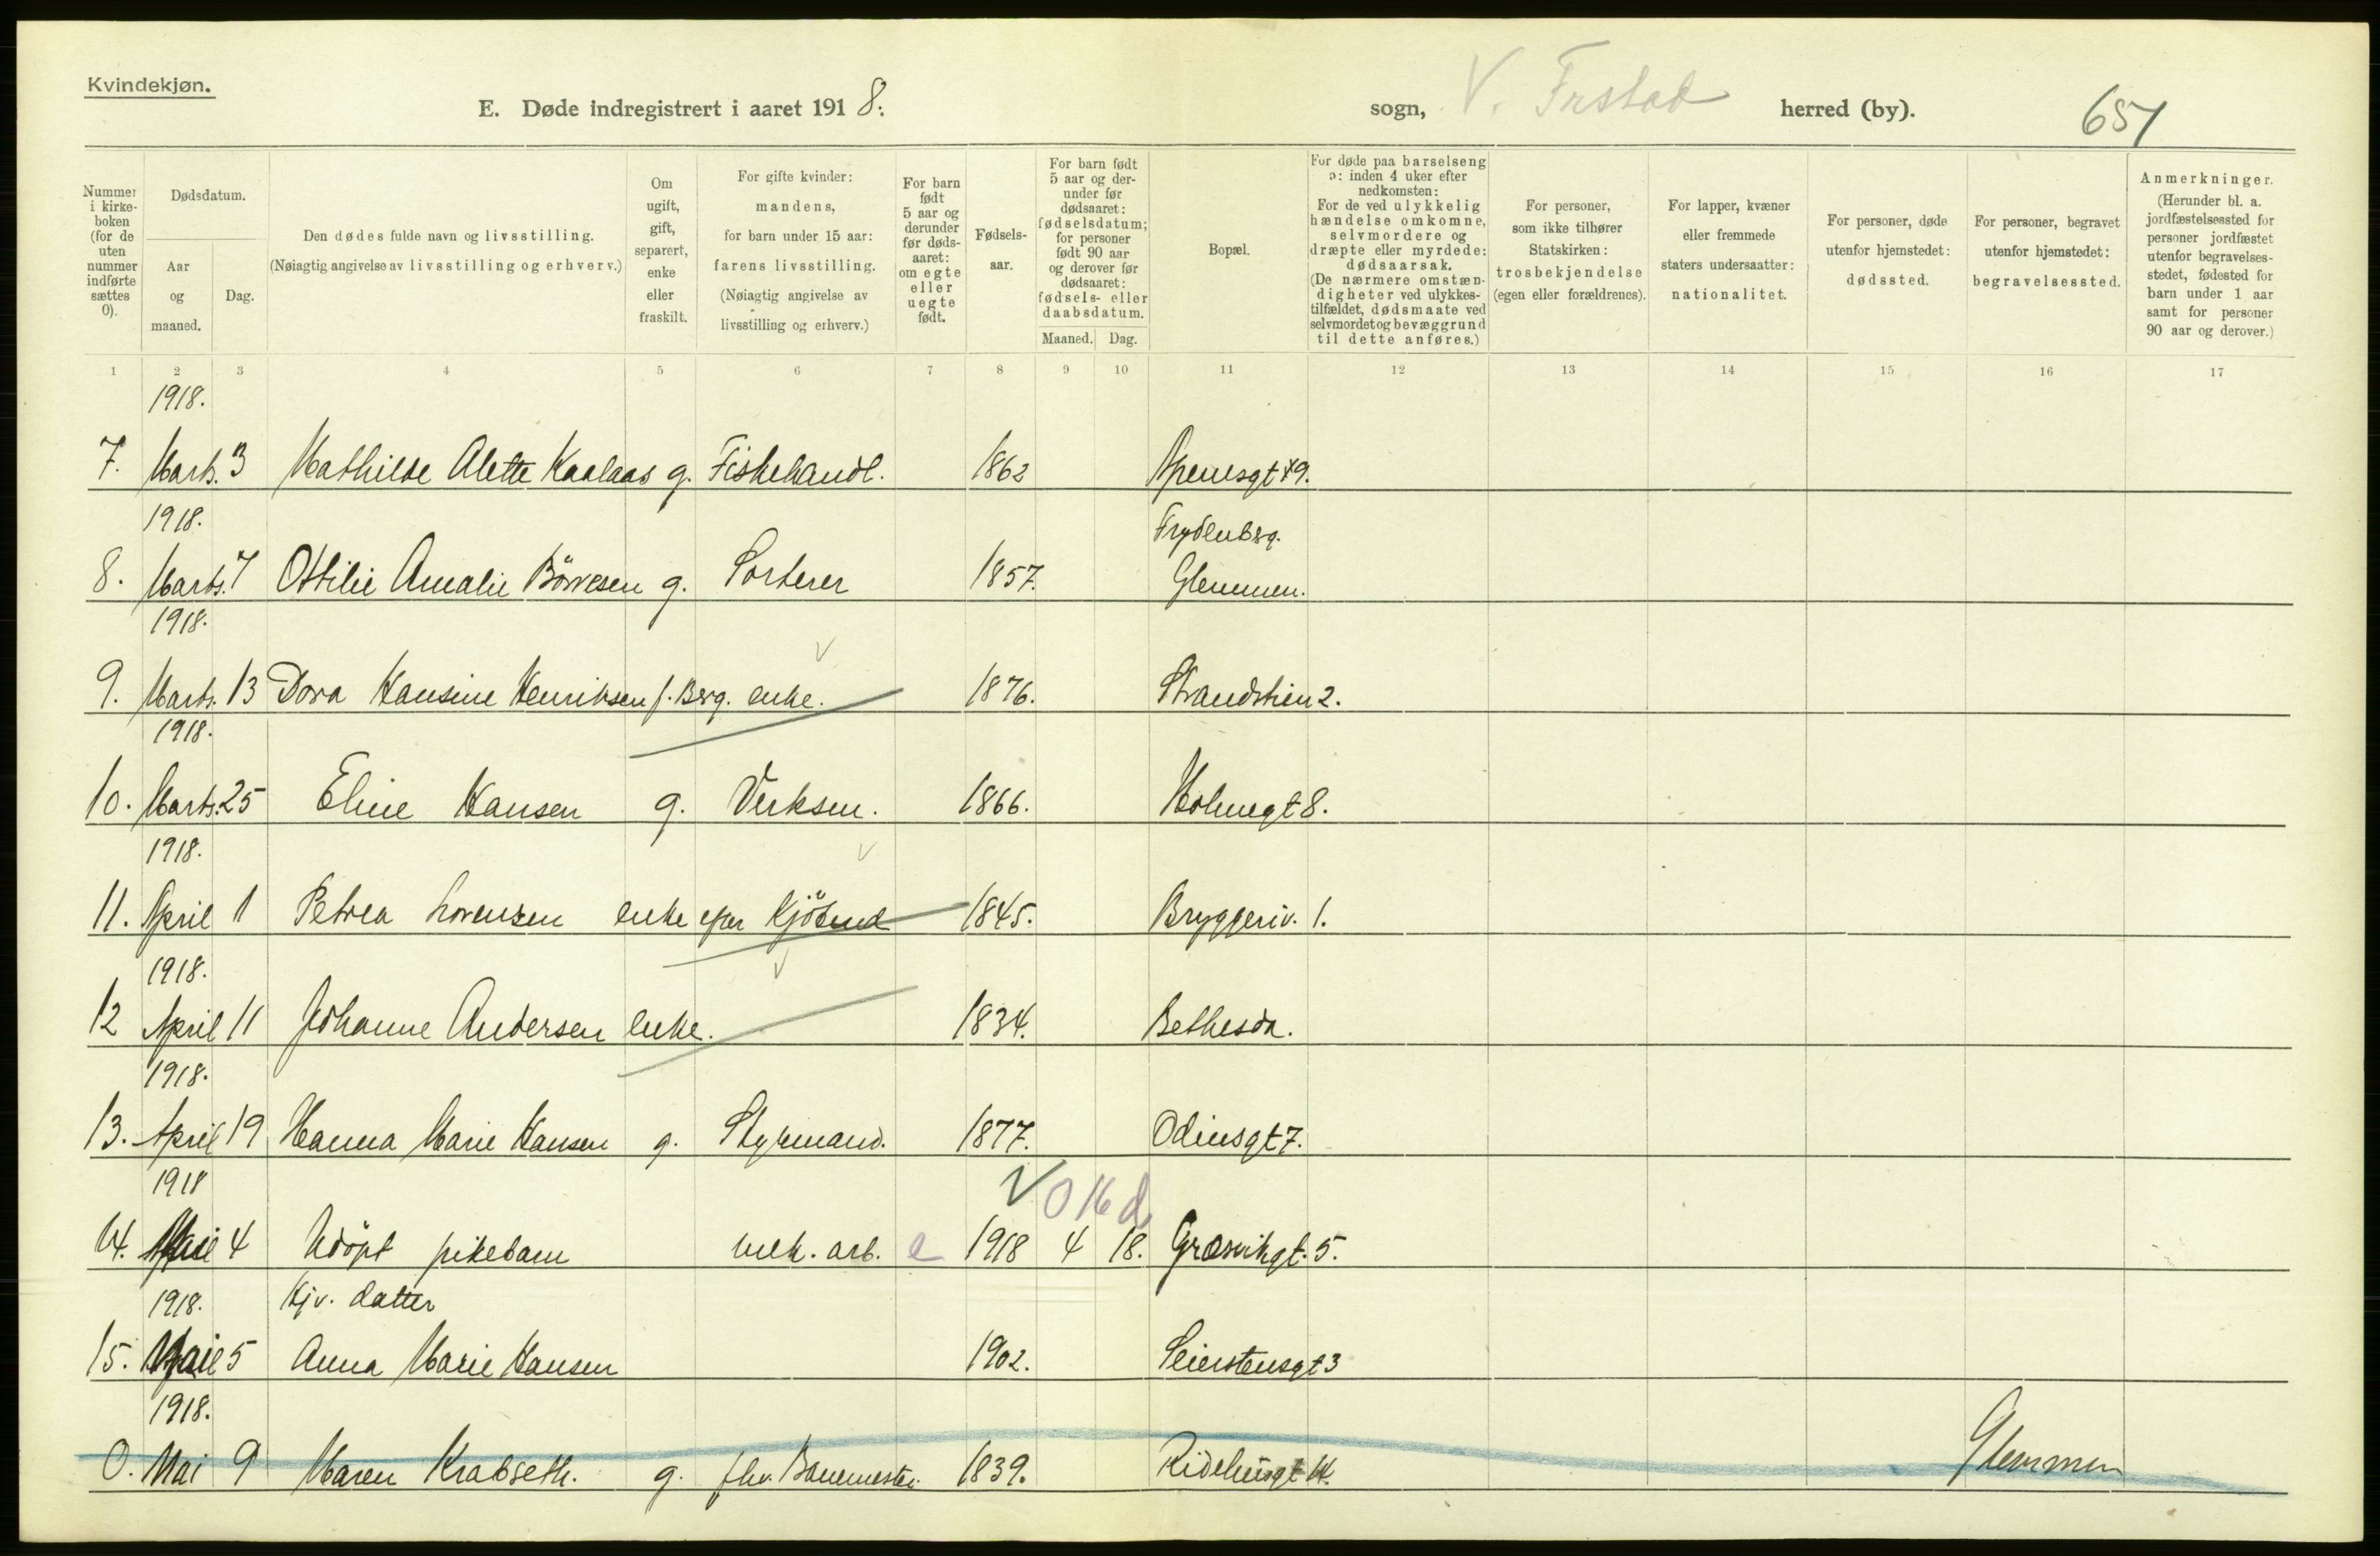 Kvindekjøn.
E. Døde indregistrert i aaret 1918. sogn, V. Frstad herred (by). 651
Nummer i kirkeboken (for de uten nummer indførte sættes 0).
Dødsdatum.
Aar og maaned.
Dag.
Den dødes fulde navn og livsstilling.
(Nøiagtig angivelse av livsstilling og erhverv.)
Om ugift, gift, separert, enke eller fraskilt.
For gifte kvinder: mandens, for barn under 15 aar: farens livsstilling. (Nøiagtig angivelse av livsstilling og erhverv.)
For barn født 5 aar og derunder før dødsaaret: om egte eller uegte født.
Fødselsaar.
For barn født 5 aar og derunder før dødsaaret: fødselsdatum; for personer født 90 aar og derover før dødsaaret: fødsels- eller daabsdatum.
Maaned. Dag.
Bopæl.
For døde paa barselseng ɔ: inden 4 uker efter nedkomsten: For de ved ulykkelig hændelse omkomne, selvmordere og dræpte eller myrdede: dødsaarsak. (De nærmere omstændigheter ved ulykkestilfældet, dødsmaate ved selvmordet og bevæggrund til dette anføres.)
For personer, som ikke tilhører Statskirken: trosbekjendelse (egen eller forældrenes).
For lapper, kvæner eller fremmede staters undersaatter: nationalitet.
For personer, døde utenfor hjemstedet: dødssted.
For personer, begravet utenfor hjemstedet: begravelsessted.
Anmerkninger. (Herunder bl. a. jordfæstelsessted for personer jordfæstet utenfor begravelsesstedet, fødested for barn under 1 aar samt for personer 90 aar og derover.)
1 2 3 4 5 6 7 8 9 10 11 12 13 14 15 16 17
1918.
7. Marts. 3 Mathilde Alette Kaalaas g. Fiskehandl. 1862
1918. Frydenberg.
8. Marts. 7 Ottilie Amalie Börresen g. Sorterer 1857. Glemmen.
1918.
9. Marts. 13 Dora Hansine Henriksen f. Berg. enke. 1876. Strandstien 2.
1918.
10. Marts. 25 Eline Hansen g. Verksm. 1866. Holmegt 8.
1918.
11. April 1 Petrea Lorenzen enke efter Kjöbmd 1845. Bryggeriv. 1.
1918.
12 April 11 Johanne Andersen enke. 1834. Bethesda.
1918.
13. April 19 Hanna Marie Hansen g. Styrmand. 1877. Odinsgt 7.
1918 0 16 d.
14. Mai 4 Udöpt pikebarn mek. arb. e 1918 4 18. Græsvikgt. 5.
1918. Hjv. datter
15. Mai 5 Anna Marie Hansen 1902. Seierstensgt 3
1918.
0. Mai 9 Maren Krabseth. g. fhv. Banemester 1839. Glemmen